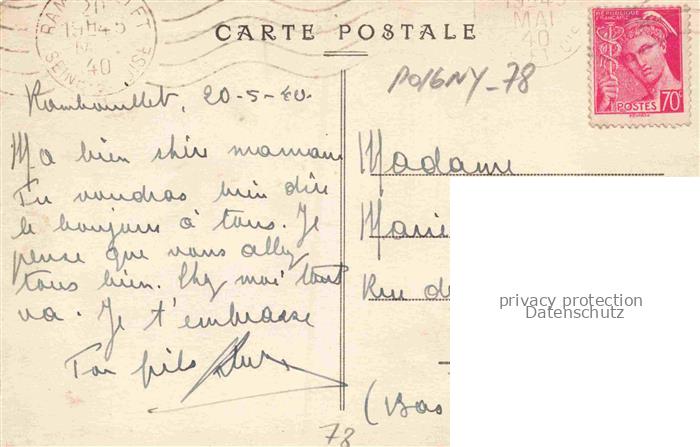 RAMBOUILLET
20
19H45
MAI
40
SEINE
19H45
MAI
40
CARTE POSTALE
RÉPUBLIQUE FRANÇAISE
POSTES 70c
POIGNY-78
Rambouillet, 20-5-40.
Ma bien chère maman
Tu voudras bien dire
le bonjour à tous. Je
pense que vous allez
tous bien. Chez moi tout
va. Je t'embrasse
Ton fils
Madame
Marie
Rue de
(Bas
privacy protection
Datenschutz
78